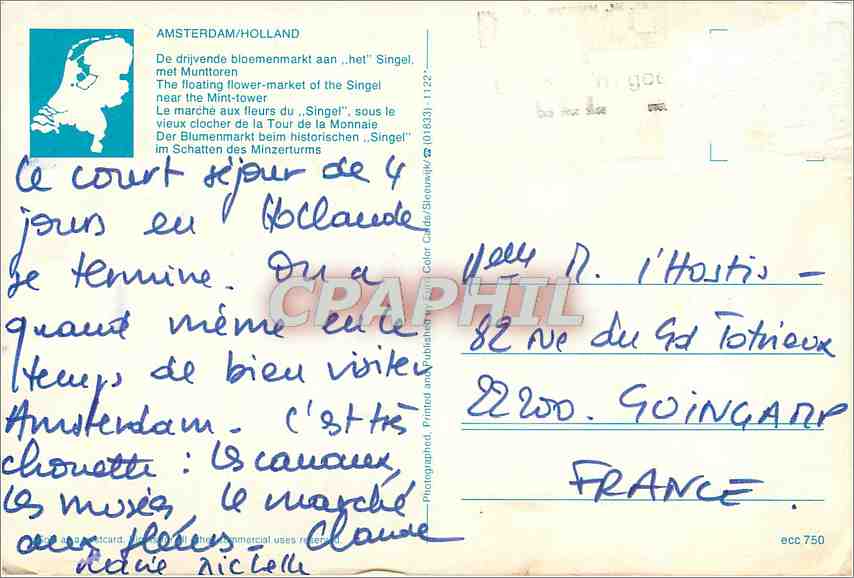 AMSTERDAM/HOLLAND
De drijvende bloemenmarkt aan ,,het" Singel,
met Munttoren
The floating flower-market of the Singel
near the Mint-tower
Le marché aux fleurs du ,,Singel", sous le
vieux clocher de la Tour de la Monnaie
Der Blumenmarkt beim historischen ,,Singel"
im Schatten des Minzerturms
Ce court séjour de 4
jours en Hollande
se termine. On a
quand même eu le
temps de bien visiter
Amsterdam. C'est très
chouette : les canaux,
les musées, le marché
aux fleurs. Claude
Marie Michelle
Photographed, Printed and Published by Euro Color Cards/Sleeuwijk/☎ (01833)-1122*
Melle M. l'Hostis -
82 rue du Gd Trotrieux
22200. GUINGAMP
FRANCE.
CPAPHIL
ecc 750